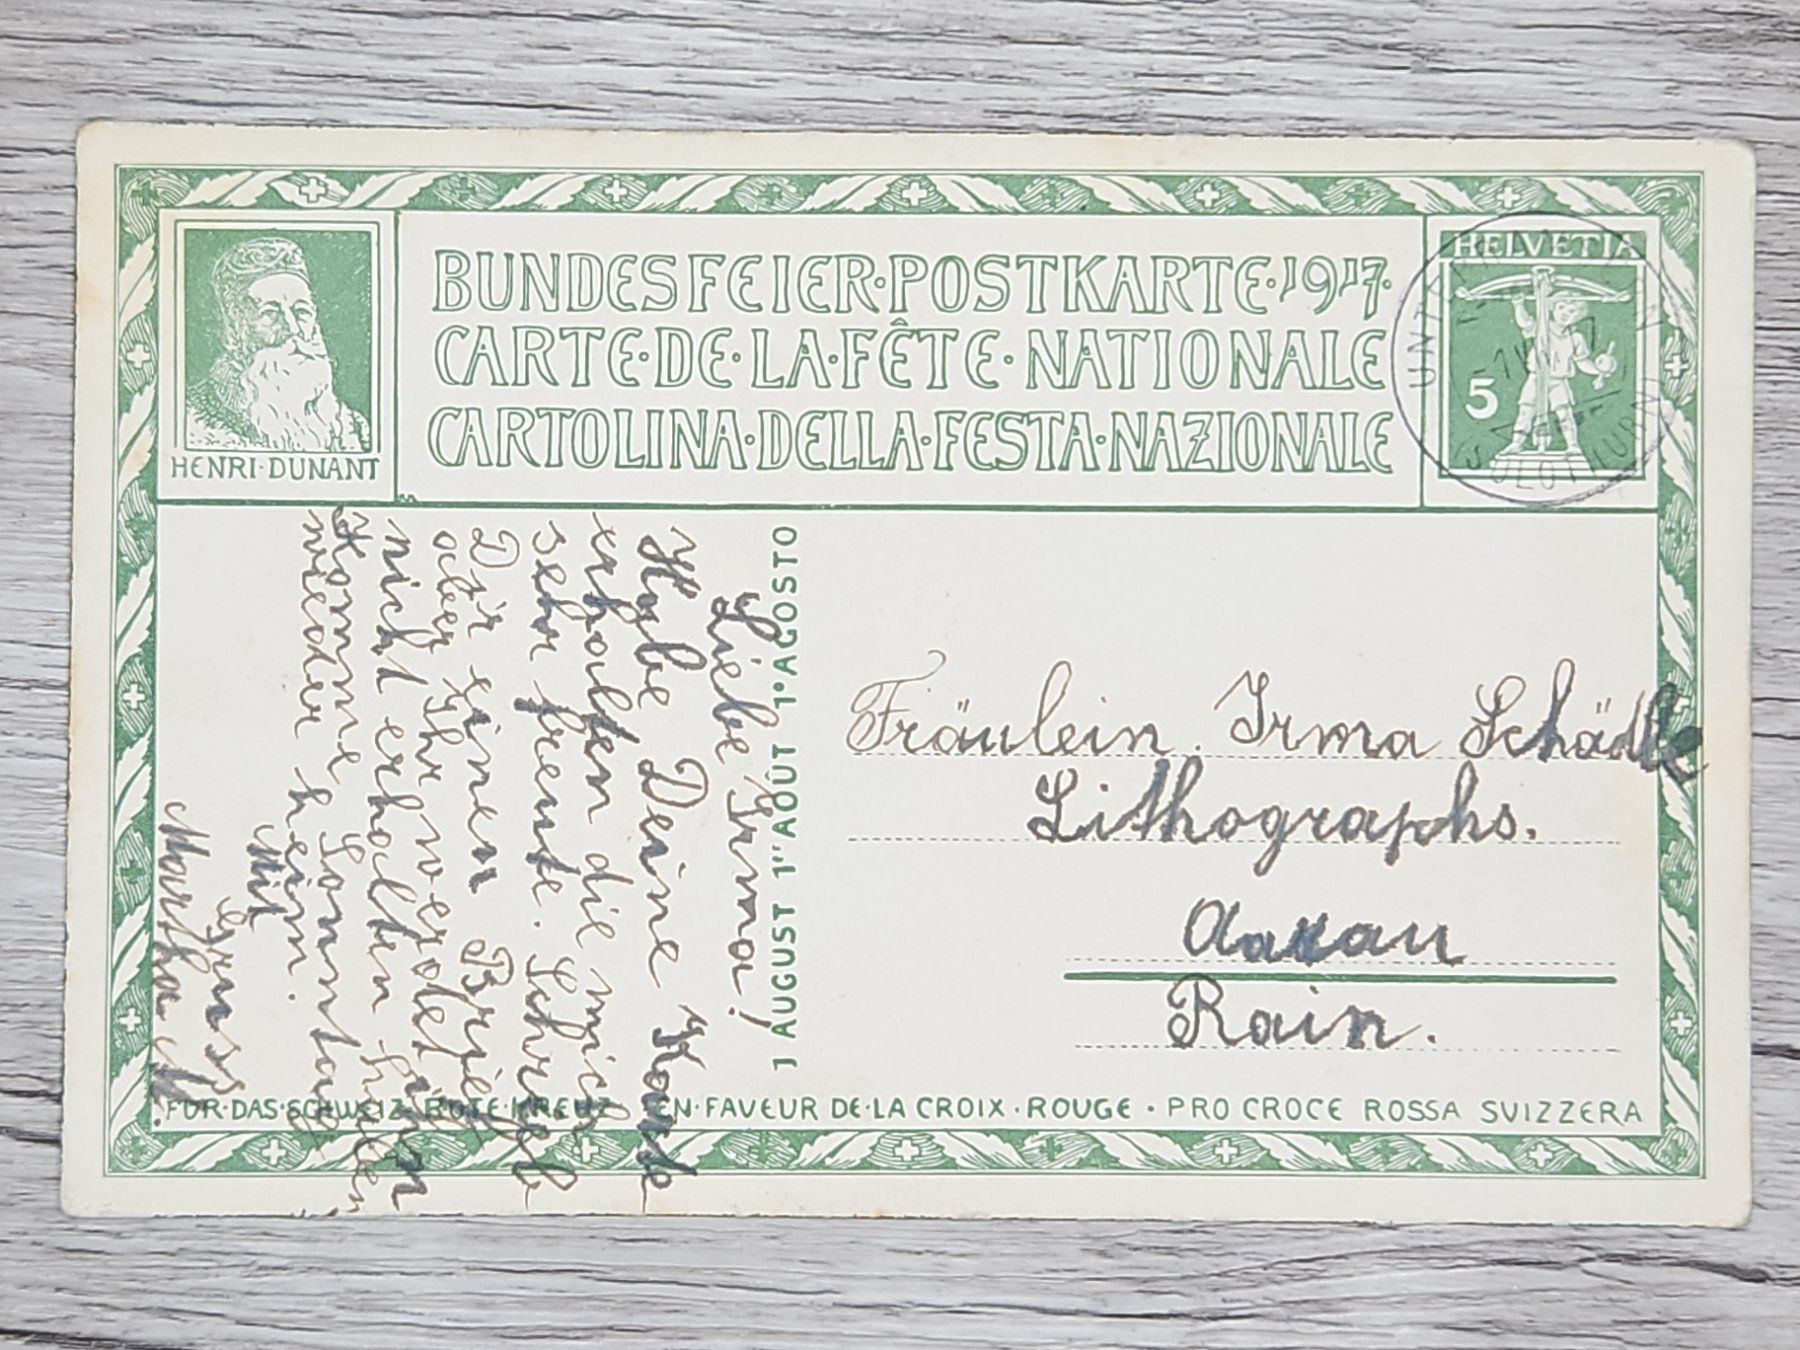 HENRI·DUNANT
BUNDESFEIER·POSTKARTE·1917·
CARTE·DE·LA·FÊTE·NATIONALE
CARTOLINA·DELLA·FESTA·NAZIONALE
HELVETIA
5
SOLOTHURN
Liebe Irma!
Habe Deine Karte
erhalten die mich
sehr freute. Schrieb
Dir einen Brief
aber Ihr werdet ihn
nicht erhalten haben
Komme Sonntag
wieder heim.
Mit
Gruss
Martha M.
1 AUGUST 1ER AOÛT 1º AGOSTO
Fräulein. Irma Schädle
Lithographs.
Aarau
Rain.
FÜR·DAS·SCHWEIZ·ROTE·KREUZ· EN·FAVEUR DE·LA CROIX·ROUGE·PRO CROCE ROSSA SVIZZERA